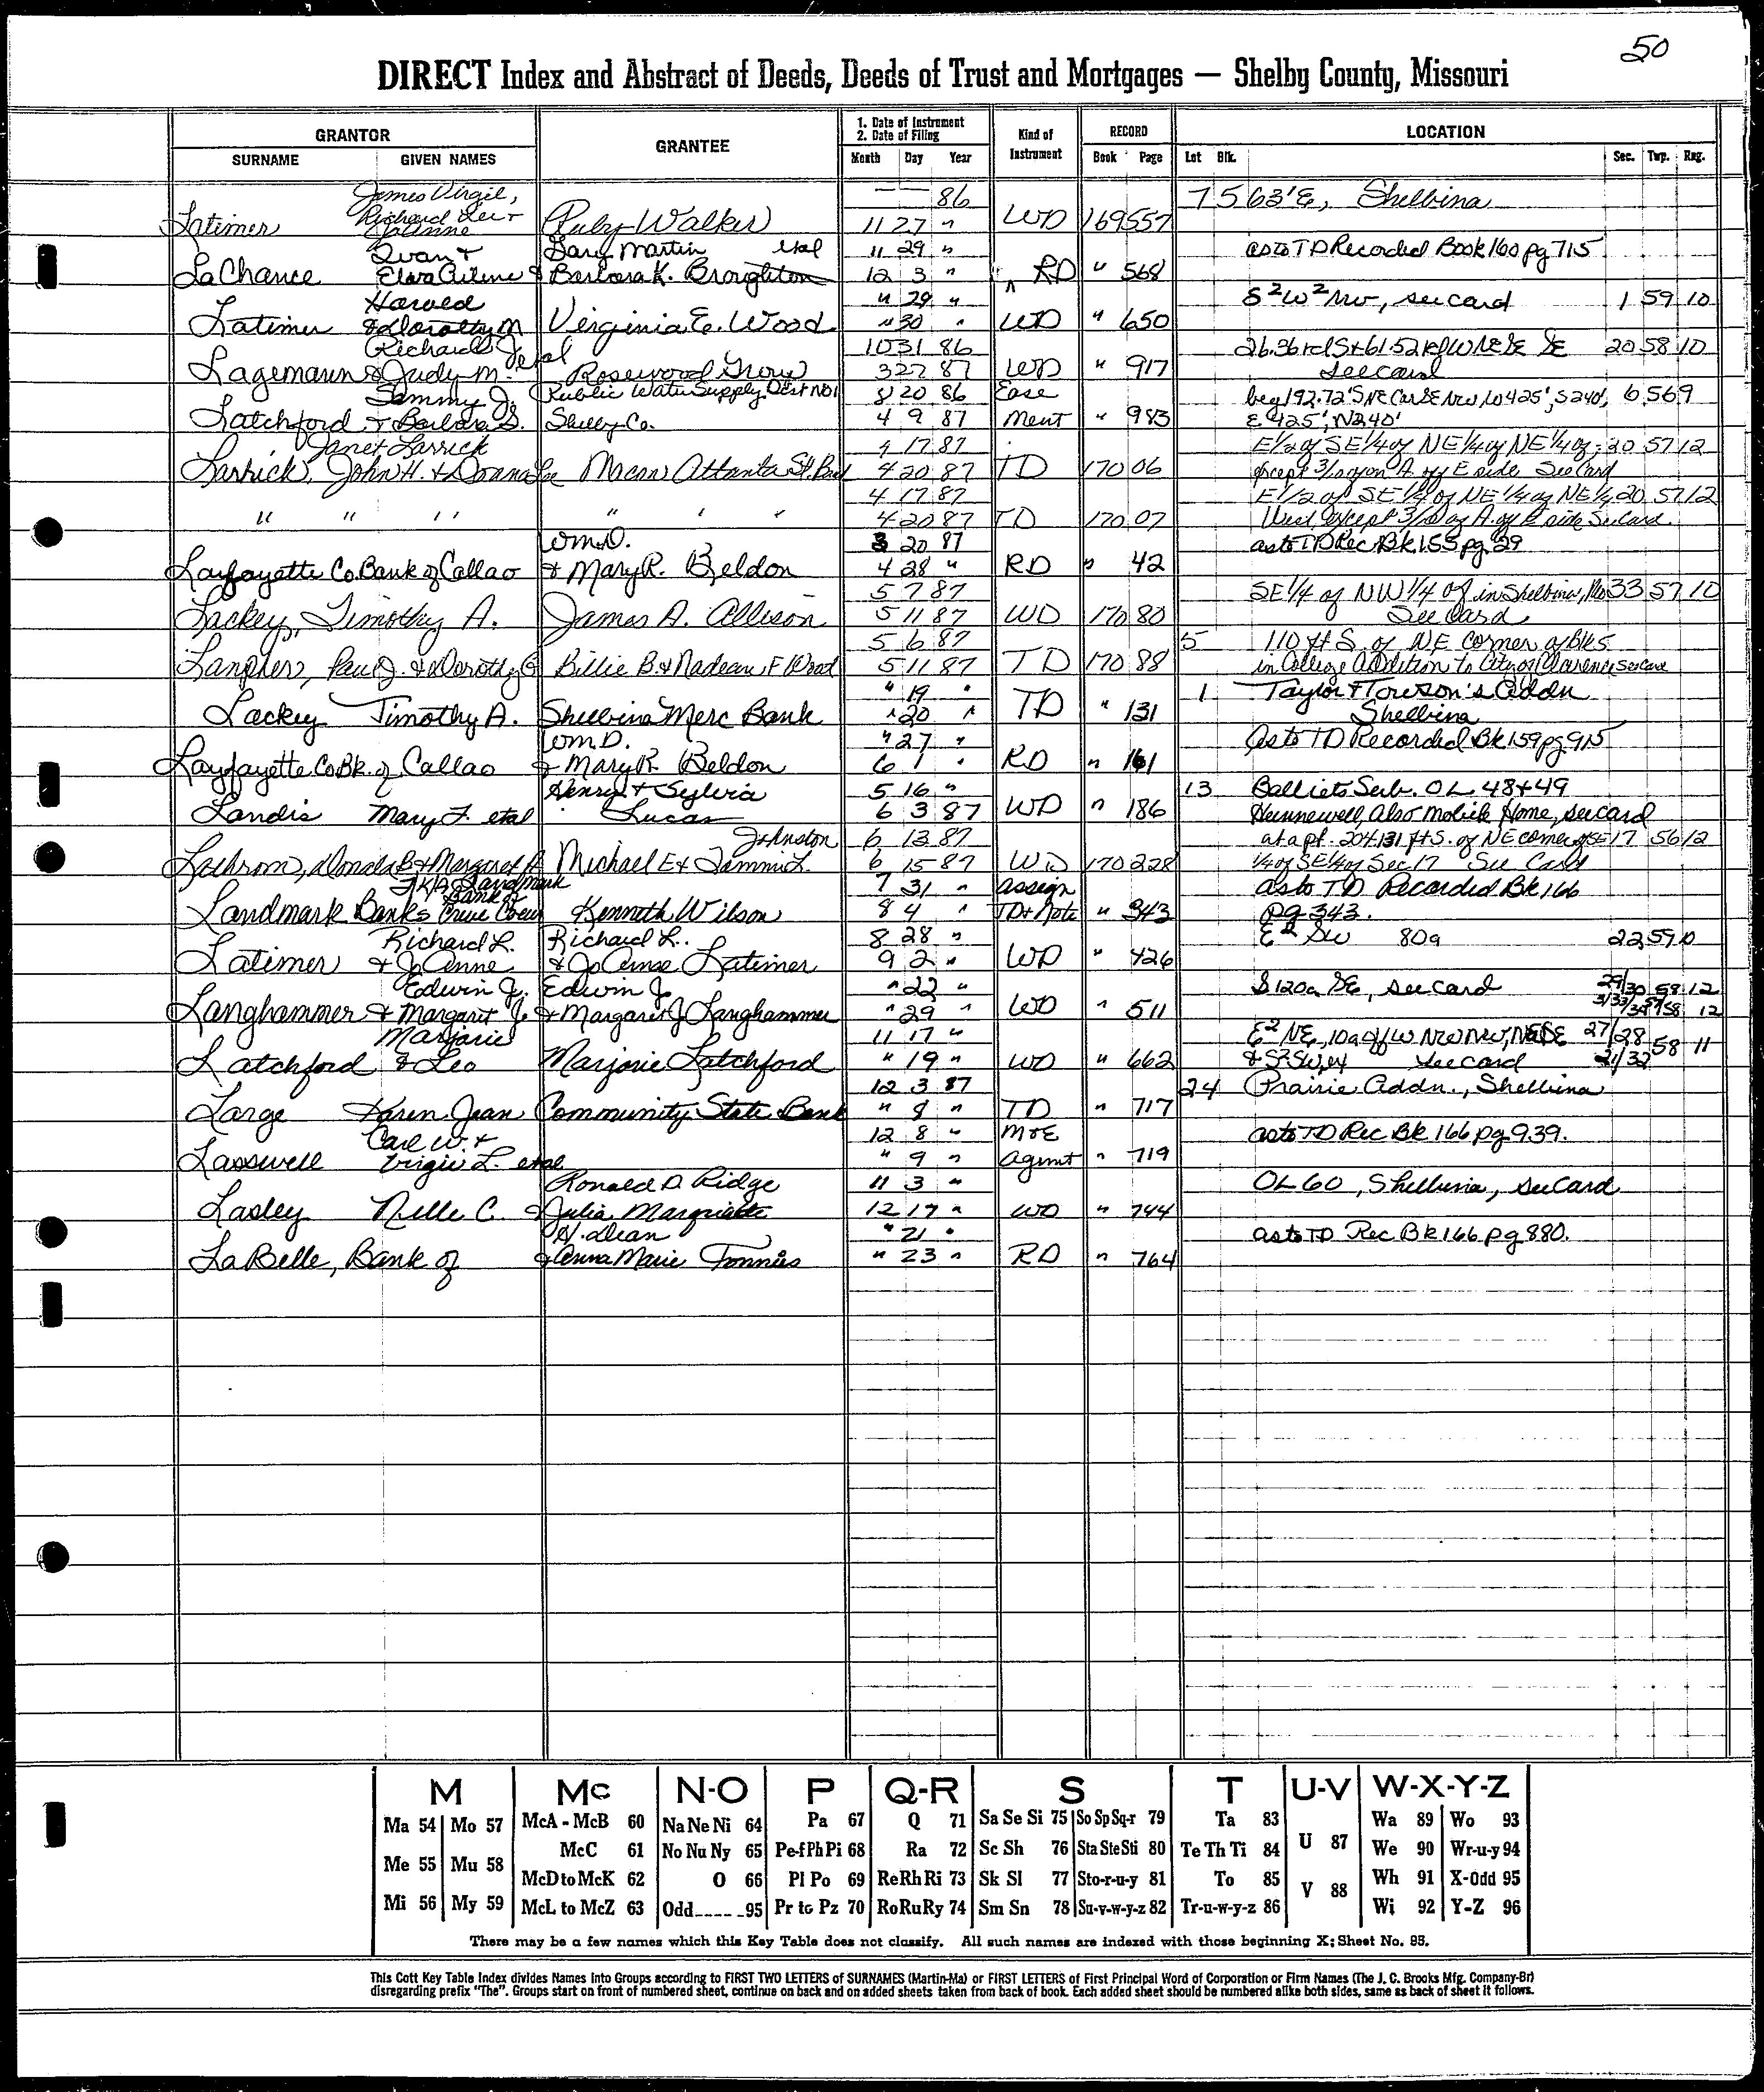 50
DIRECT Index and Abstract of Deeds, Deeds of Trust and Mortgages — Shelby County, Missouri
GRANTOR GRANTEE 1. Date of Instrument 2. Date of Filing Kind of Instrument RECORD LOCATION
SURNAME GIVEN NAMES Month Day Year Book Page Lot Blk. Sec. Twp. Rng.
James Virgil, — — 86 7 5 63'E, Shelbina
Latimer Richard Lee + Ruby Walker 11 27 " WD 169 557
Ivan + Gary Martin etal 11 29 " as to TD Recorded Book 160 pg 715
LaChance Elva Arlene & Barbara K. Broughton 12 3 " RD " 568
Harold " 29 " S² W² NW, see card 1 59 10
Latimer & Dorothy M Virginia E. Wood " 30 " WD " 650
Richard J. etal 10 31 86 26.36 rd S + 61.52 rd W NE SE 20 58 10
Lagemann & Judy M. Rosewood Grow 3 27 87 WD " 917 See card
Sammy J. Public Water Supply Dist No 1 8 20 86 Ease beg 192.72' S NE Cor SE NW, W 425', S 240', 6 56 9
Latchford + Barbara S. Shelby Co. 4 9 87 ment " 983 E 425', N 240'
Janet Larrick 4 17 87 E 1/2 of SE 1/4 of NE 1/4 of NE 1/4 of; 20 57 12
Larrick, John H. + Donna Lee Macon Attanta St. Bank 4 20 87 TD 170 06 except 3/10 of an A. off E side See Card
4 17 87 E 1/2 of SE 1/4 of NE 1/4 of NE 1/4 20 57 12
" " " " " " 4 20 87 TD 170 07 except 3/10 of A. off E side See Card.
Wm D. 3 20 87 as to TD Rec Bk 155 pg 29
Layfayette Co. Bank of Callao & Mary R. Beldon 4 28 " RD " 42
5 7 87 SE 1/4 of NW 1/4 of in Shelbina, Mo 33 57 10
Lackey, Timothy A. James A. Allison 5 11 87 WD 170 80 See Card
5 6 87 5 110 ft S. of NE corner of Blk 5
Lanpher, Paul J. & Dorothy Billie B. & Nadean F Wood 5 11 87 TD 170 88 in College Addition to City of Clarence See Card
" 19 " 1 Taylor & Towson's Addn
Lackey Timothy A. Shelbina Merc Bank " 20 " TD " 131 Shelbina
Wm D. " 27 " As to TD Recorded Bk 159 pg 915
Layfayette Co Bk. of Callao & Mary R. Beldon 6 1 " RD " 161
Henry + Sylvia 5 16 " 13 Balliets Sub. OL 48 + 49
Landis Mary F. etal Lucas 6 3 87 WD " 186 Hunnewell, Also Mobile Home, see card
Johnston 6 13 87 at a pt. 204.131 ft S. of NE corner of SE 17 56 12
Lathrom, Donald B + Margaret A Michael E + Tammi L. 6 15 87 WD 170 228 1/4 of SE 1/4 of Sec 17 See Card
F/K/A Landmark Bank of 7 31 " assign as to TD Recorded Bk 166
Landmark Banks Creve Coeur Kenneth Wilson 8 4 " TD + Note " 343 pg 343.
Richard L. Richard L. 8 28 " E² SW 80a 22 59 10
Latimer & JoAnne & JoAnne Latimer 9 2 " WD " 426
Edwin J. Edwin J. " 22 " S 120a SE, see card 29/30 58 12
Langhammer & Margaret J. & Margaret J Langhammer " 29 " WD " 511
Marjorie 11 17 " E² NE, 10a off W NW NW, 27/28
Latchford & Leo Marjorie Latchford " 19 " WD " 662 see card 58 11
12 3 87 24 Prairie Addn., Shelbina
Large Karen Jean Community State Bank " 8 " TD " 717
Carl W. + 12 8 " M+E as to TD Rec Bk 166 pg 939.
Lasswell Virgie L. etal " 9 " agmt " 719
Ronald D. Ridge 11 3 " OL 60, Shelbina, see Card
Lasley Nelle C. & Julia Marguerite 12 17 " WD " 744
H. Dean " 21 " as to TD Rec Bk 166 pg 880.
LaBelle, Bank of & Anna Marie Tonnies " 23 " RD " 764
M Mc N-O P Q-R S T U-V W-X-Y-Z
Ma 54 Mo 57 McA - McB 60 Na Ne Ni 64 Pa 67 Q 71 Sa Se Si 75 So Sp Sq-r 79 Ta 83 Wa 89 Wo 93
McC 61 No Nu Ny 65 Pe-f Ph Pi 68 Ra 72 Sc Sh 76 Sta Ste Sti 80 Te Th Ti 84 U 87 We 90 Wr-u-y 94
Me 55 Mu 58 McD to McK 62 O 66 Pl Po 69 Re Rh Ri 73 Sk Sl 77 Sto-r-u-y 81 To 85 V 88 Wh 91 X-Odd 95
Mi 56 My 59 McL to McZ 63 Odd_____95 Pr to Pz 70 Ro Ru Ry 74 Sm Sn 78 Su-v-w-y-z 82 Tr-u-w-y-z 86 Wi 92 Y-Z 96
There may be a few names which this Key Table does not classify. All such names are indexed with those beginning X; Sheet No. 95.
This Cott Key Table Index divides Names into Groups according to FIRST TWO LETTERS of SURNAMES (Martin-Ma) or FIRST LETTERS of First Principal Word of Corporation or Firm Names (The J. C. Brooks Mfg. Company-Br)
disregarding prefix "The". Groups start on front of numbered sheet, continue on back and on added sheets taken from back of book. Each added sheet should be numbered alike both sides, same as back of sheet it follows.